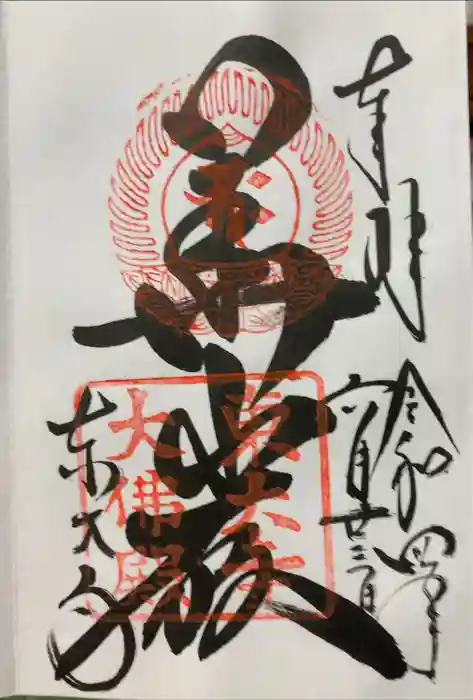 奉拝
令和四年
六月廿三日
華嚴
東大寺
東大寺
大佛殿